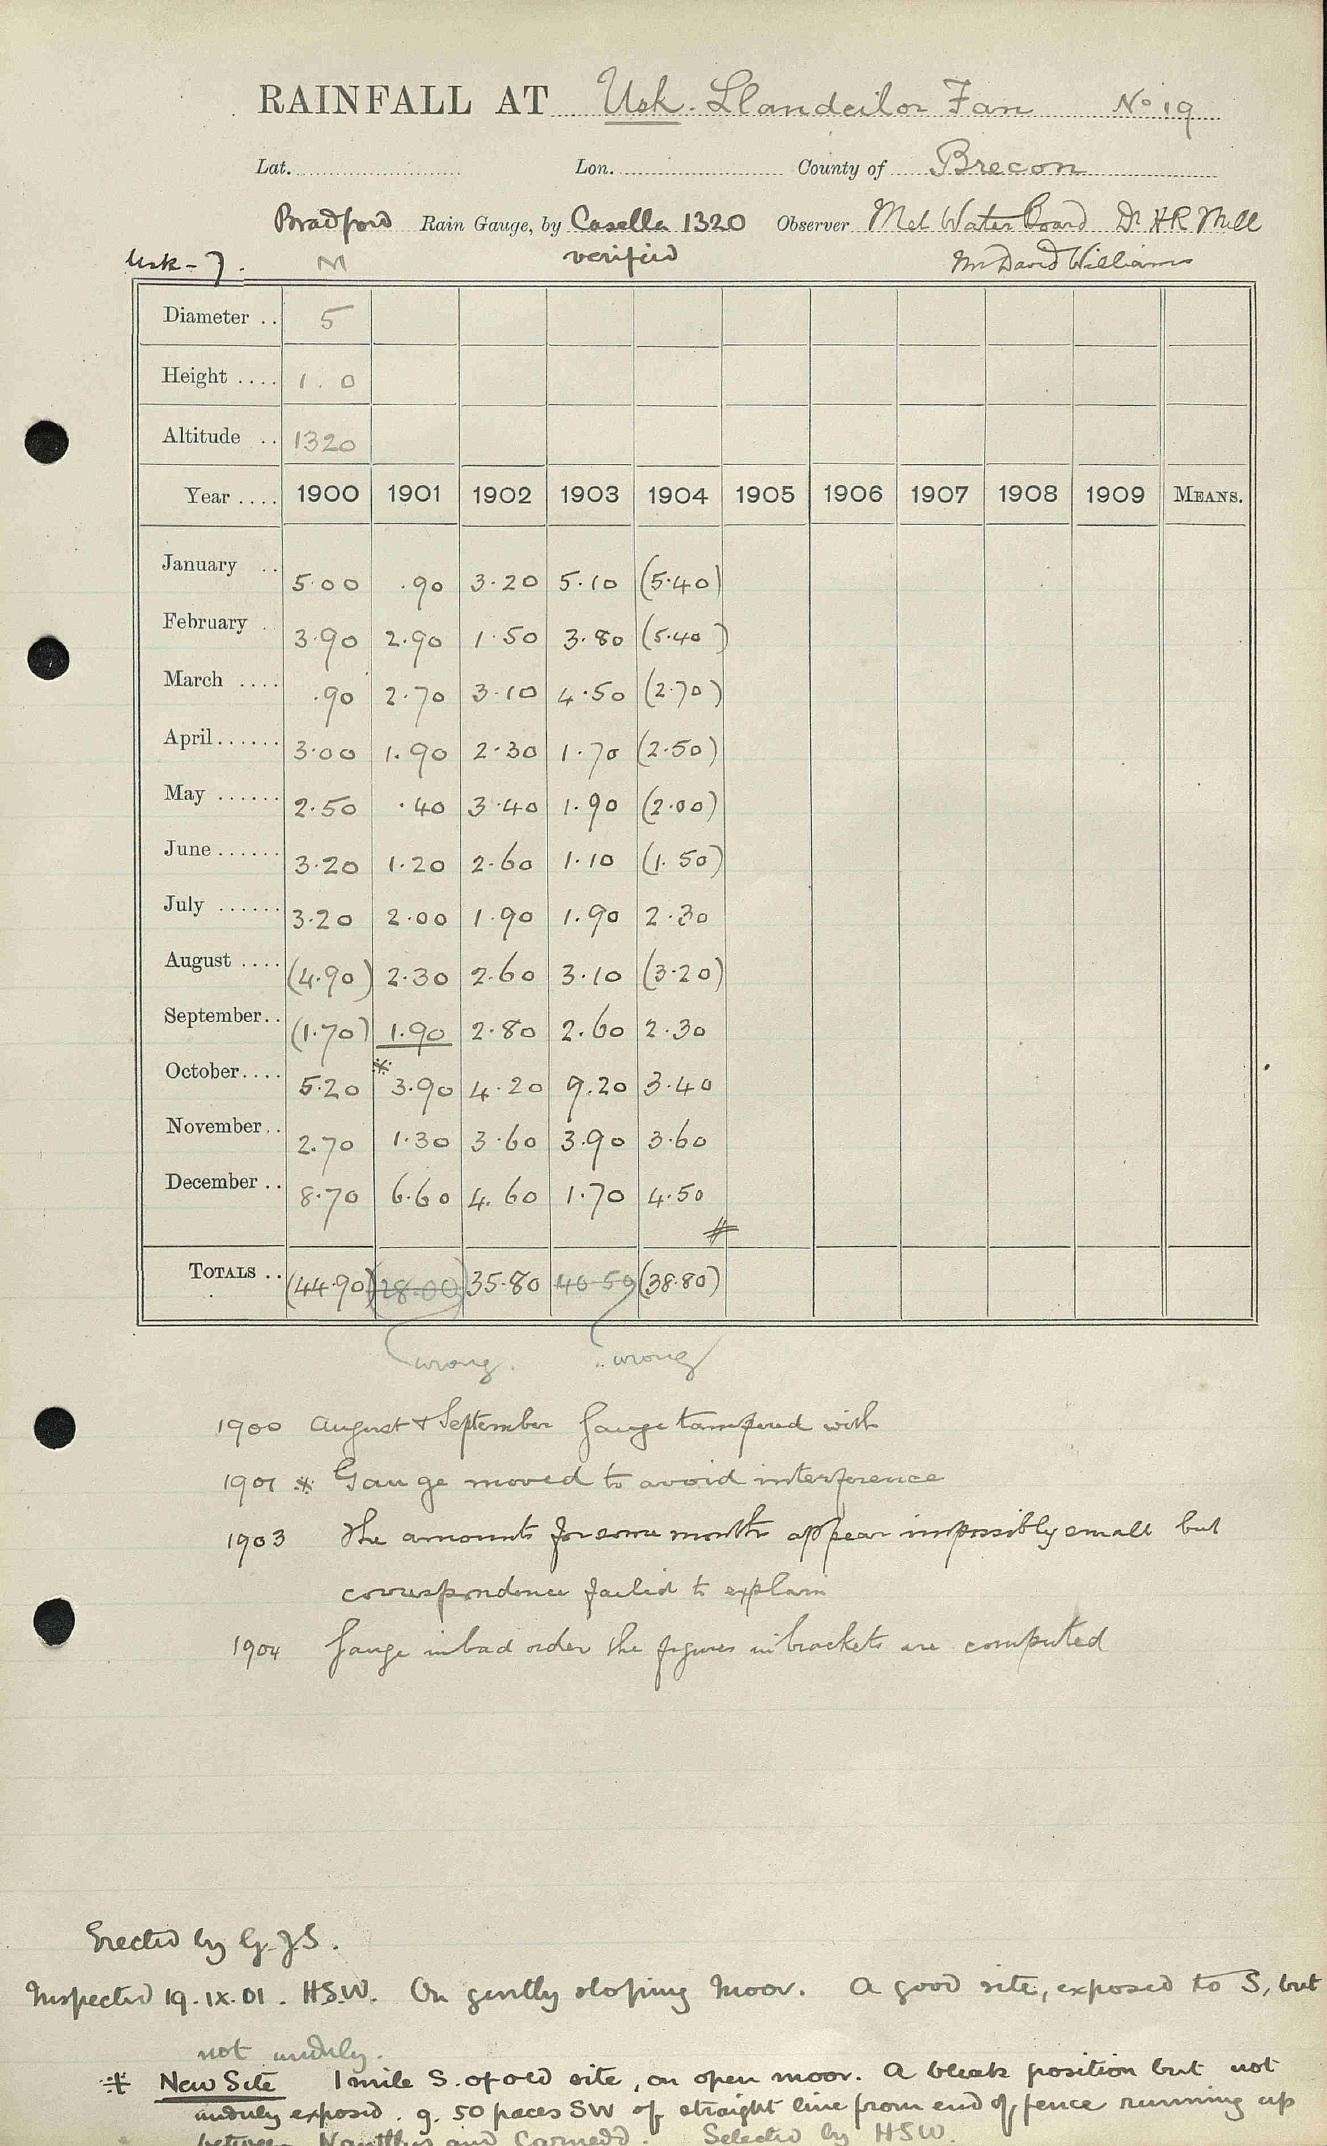 RAINFALL AT Usk. Llandeilor Fan No 19
Lat. Lon. County of Brecon
Bradford Rain Gauge, by Casella 1320 Observer Met Water Board Dr HR Mill
Usk-7. M verified Mr David Williams
Diameter .. 5
Height .... 1.0
Altitude .. 1320
Year .... 1900 1901 1902 1903 1904 1905 1906 1907 1908 1909 MEANS.
January .. 5.00 .90 3.20 5.10 (5.40)
February . 3.90 2.90 1.50 3.80 (5.40)
March .... .90 2.70 3.10 4.50 (2.70)
April ...... 3.00 1.90 2.30 1.70 (2.50)
May ...... 2.50 .40 3.40 1.90 (2.00)
June ...... 3.20 1.20 2.60 1.10 (1.50)
July ...... 3.20 2.00 1.90 1.90 2.30
August .... (4.90) 2.30 2.60 3.10 (3.20)
September.. (1.70) 1.90 2.80 2.60 2.30
October.... 5.20 * 3.90 4.20 9.20 3.40
November.. 2.70 1.30 3.60 3.90 3.60
December .. 8.70 6.60 4.60 1.70 4.50
TOTALS .. (44.90) (28.00) 35.80 40.50 (38.80)
wrong. wrong
1900 August & September gauge tampered with
1901 * Gauge moved to avoid interference
1903 The amounts for some months appear impossibly small but
correspondence failed to explain
1904 Gauge in bad order the figures in brackets are computed
Erected by G.J.S.
Inspected 19.IX.01. HSW. On gently sloping moor. A good site, exposed to S, but
not unduly.
* New Site 1 mile S. of old site, on open moor. A bleak position but not
unduly exposed. g. 50 paces SW of straight line from end of fence running up
between and Carnedd. Selected by HSW.